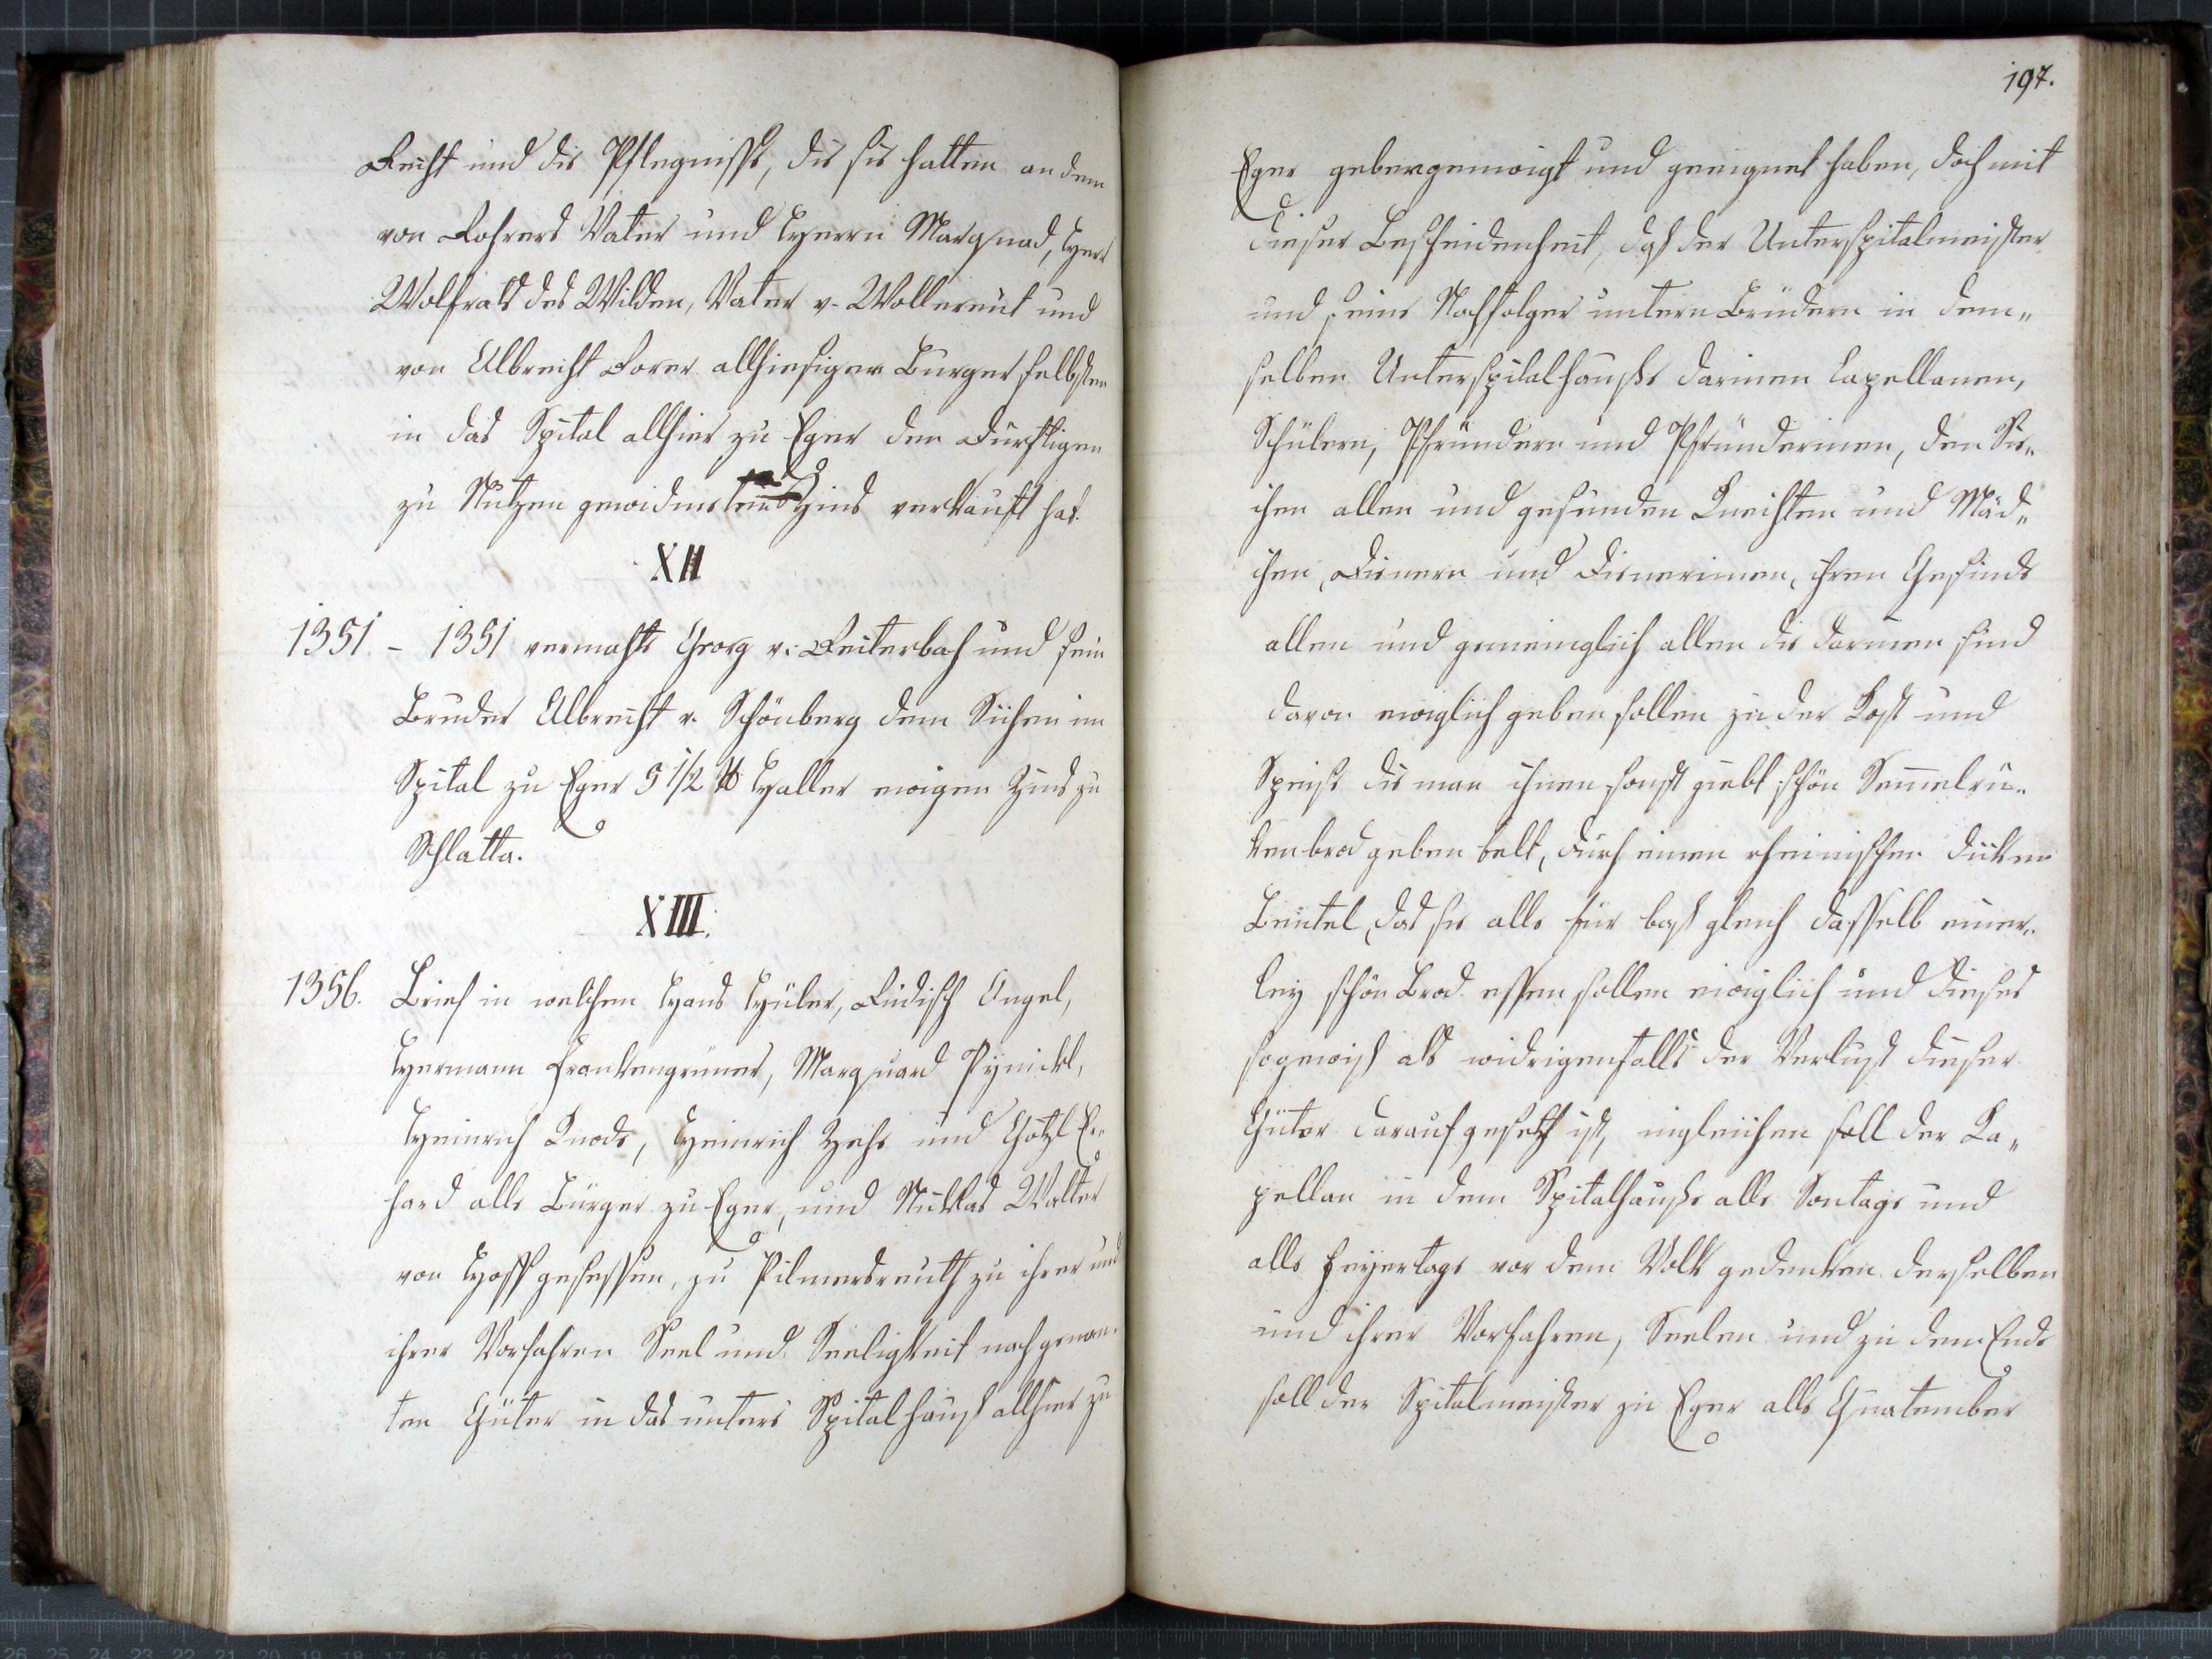 Recht und die Pflegnisse, die sie hatten an dem
von Rohrers Vater und Herrn Marquad, Herr
Wolfrats des Wilden, Vater v. Wollereut und
von Albrecht Forer allhiesiger Burger selbsten
in das Spital allhier zu Eger den Dürftigen
zu Nutzen gewidmeten Zins verkauft hat.
XII
1351 – 1351 vermacht Georg v. Reiterbach und sein
Bruder Albrecht v. Schönberg dem Siechen im
Spital zu Eger 5 1/2 ℔ Haller ewigen Zins zu
Schlatta.
XIII.
1356. Brief in welchen Hans Hüler, Rüdisch Angel,
Hermann Frankengrüner, Marquard Pynickl,
Heinrich Knode, Heinrich Zehe und Götzl E-
hard alle Bürger zu Eger, und Nicklas Walter
von Hoff gesessen, zu Pilmersreuth zu ihrer und
ihrer Vorfahren Seel und Seeligkeit nachgenan-
ten Güter in das untere Spital hauß allhier zu
197.
Eger geben geewigt und geeignet haben, doch mit
dieser Bescheidenheit, daß der Unterspitalmeister
und seine Nachfolger untern Brüdern in dem„
selben Unterspitalhauße darinen Capellanen,
Schülern, Pfründern und Pfründerinen, den Sie„
chen allen und gesunden Knechten und Mäd„
chen, Dienern und Dienerinen, ihren Gesinde
allen und gemeinglich allen die darinen sind
davon ewiglich geben sollen zu der Kost und
Speise die man ihnen sonst giebt schön Semelru„
ken brod geben belt, durch einen rheinischen dicken
Beutel, das sie alle für baß gleich dasselb einer„
ley schön Brod essen sollen ewiglich und dieses
sogewiß als widrigenfalls der Verlust dieser
Güter darauf gesetzt ist, ingleichen soll der Ka„
pellan in dem Spitalhauße alle Sontage und
alle Feyertage vor dem Volk gedenken derselben
und ihrer Vorfahren, Seelen und zu dem Ende
soll der Spitalmeister zu Eger alle Quatember